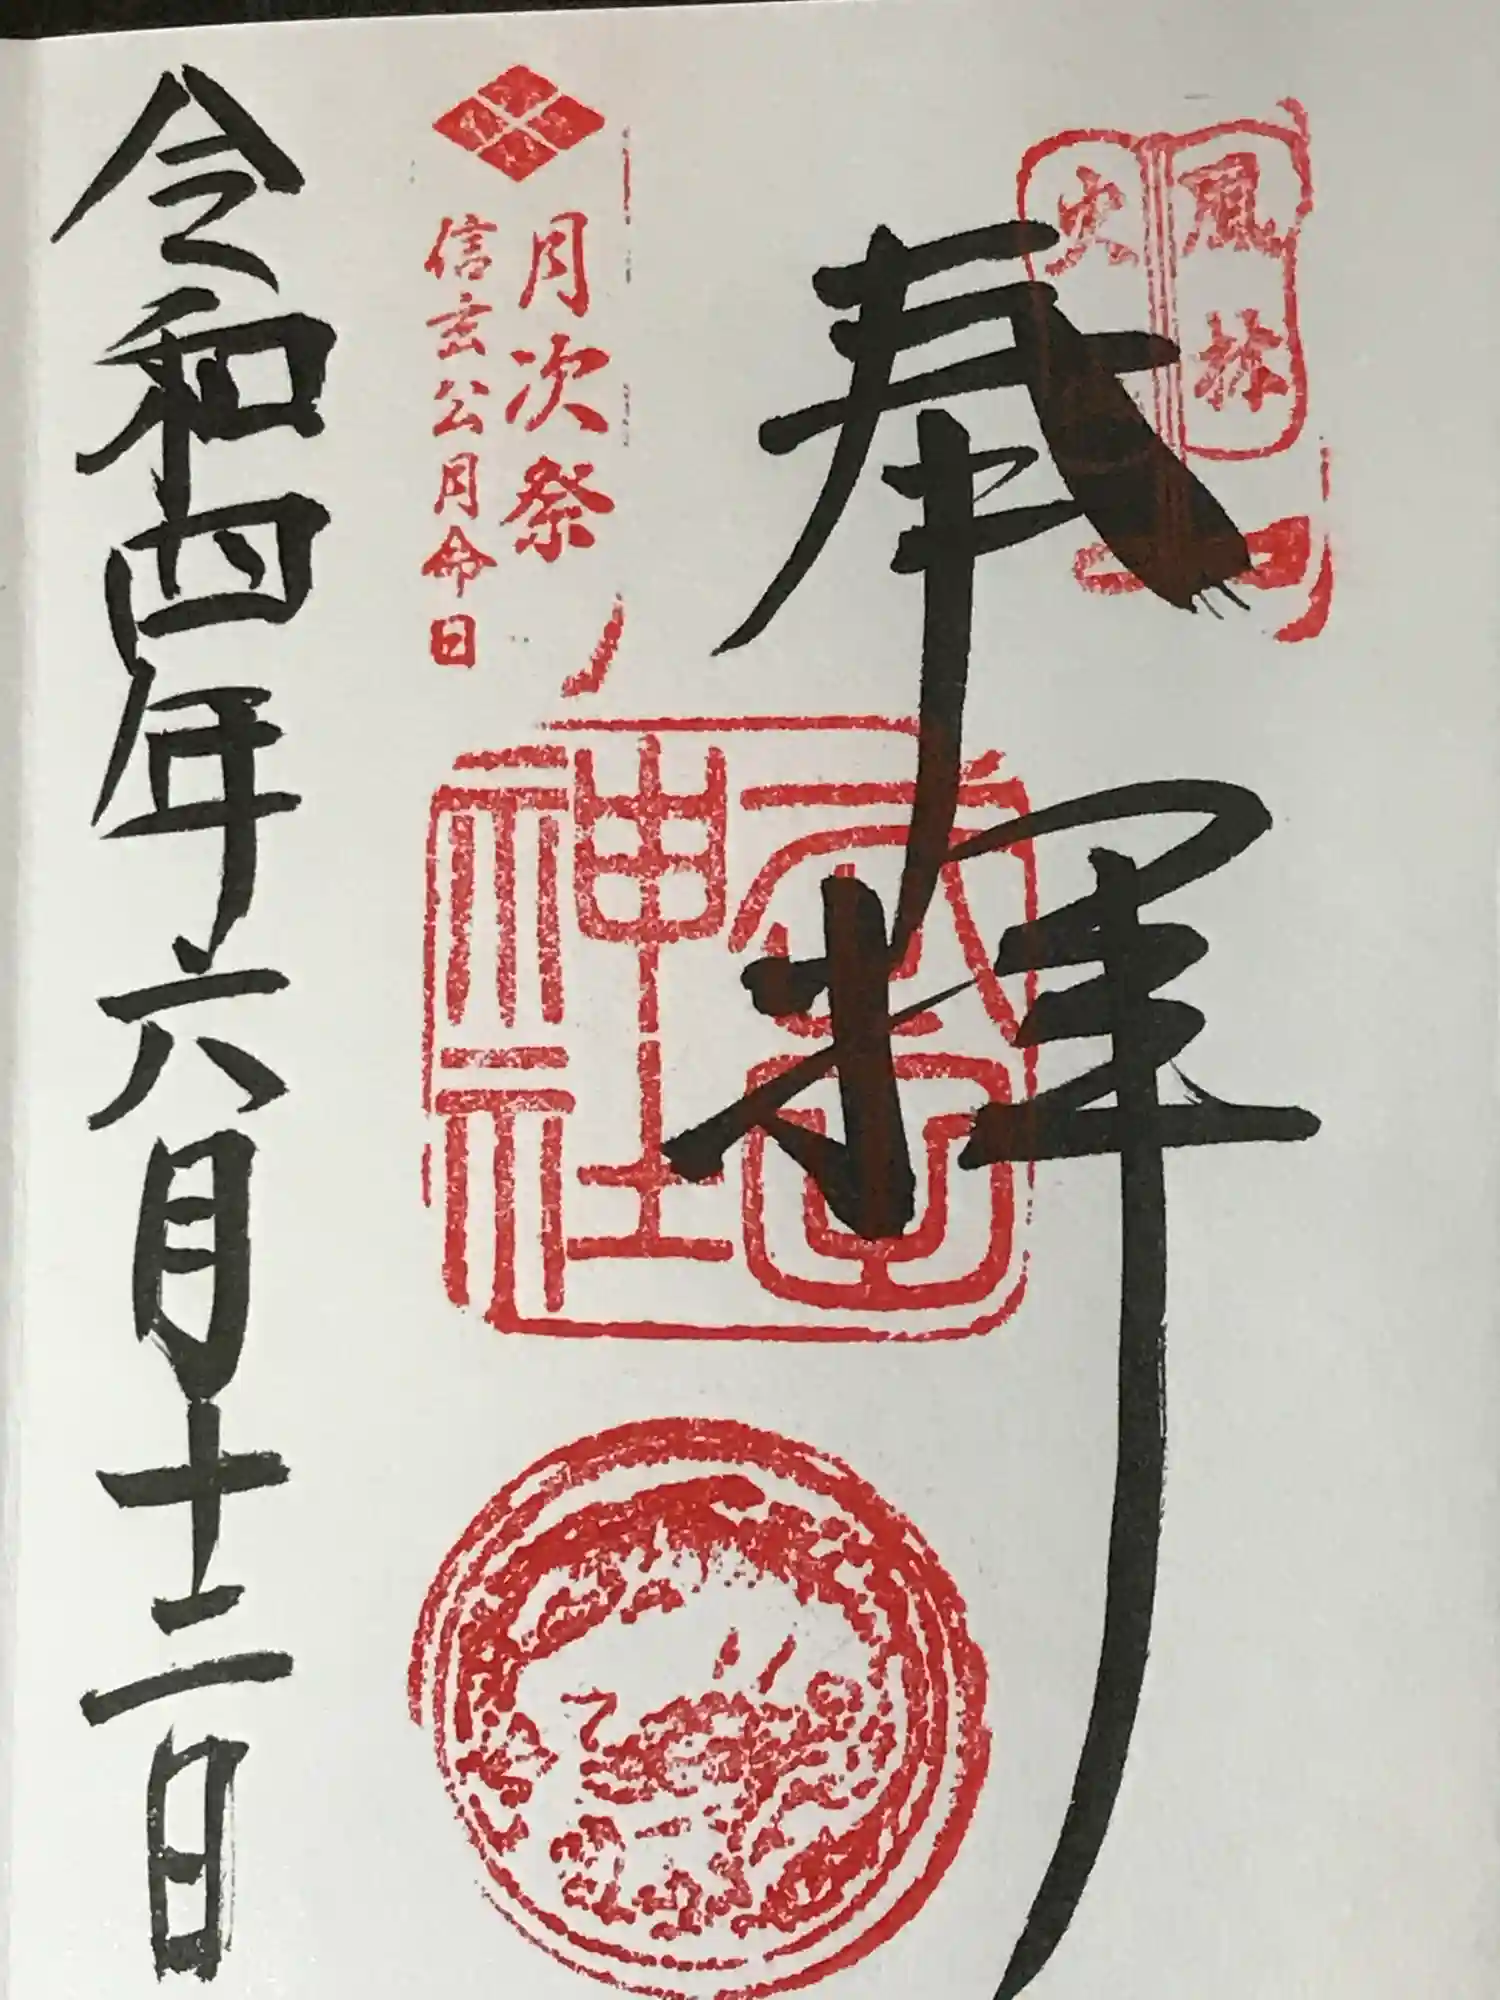 風林
火
奉拝
月次祭
信玄公月命日
神社
令和四年六月十二日